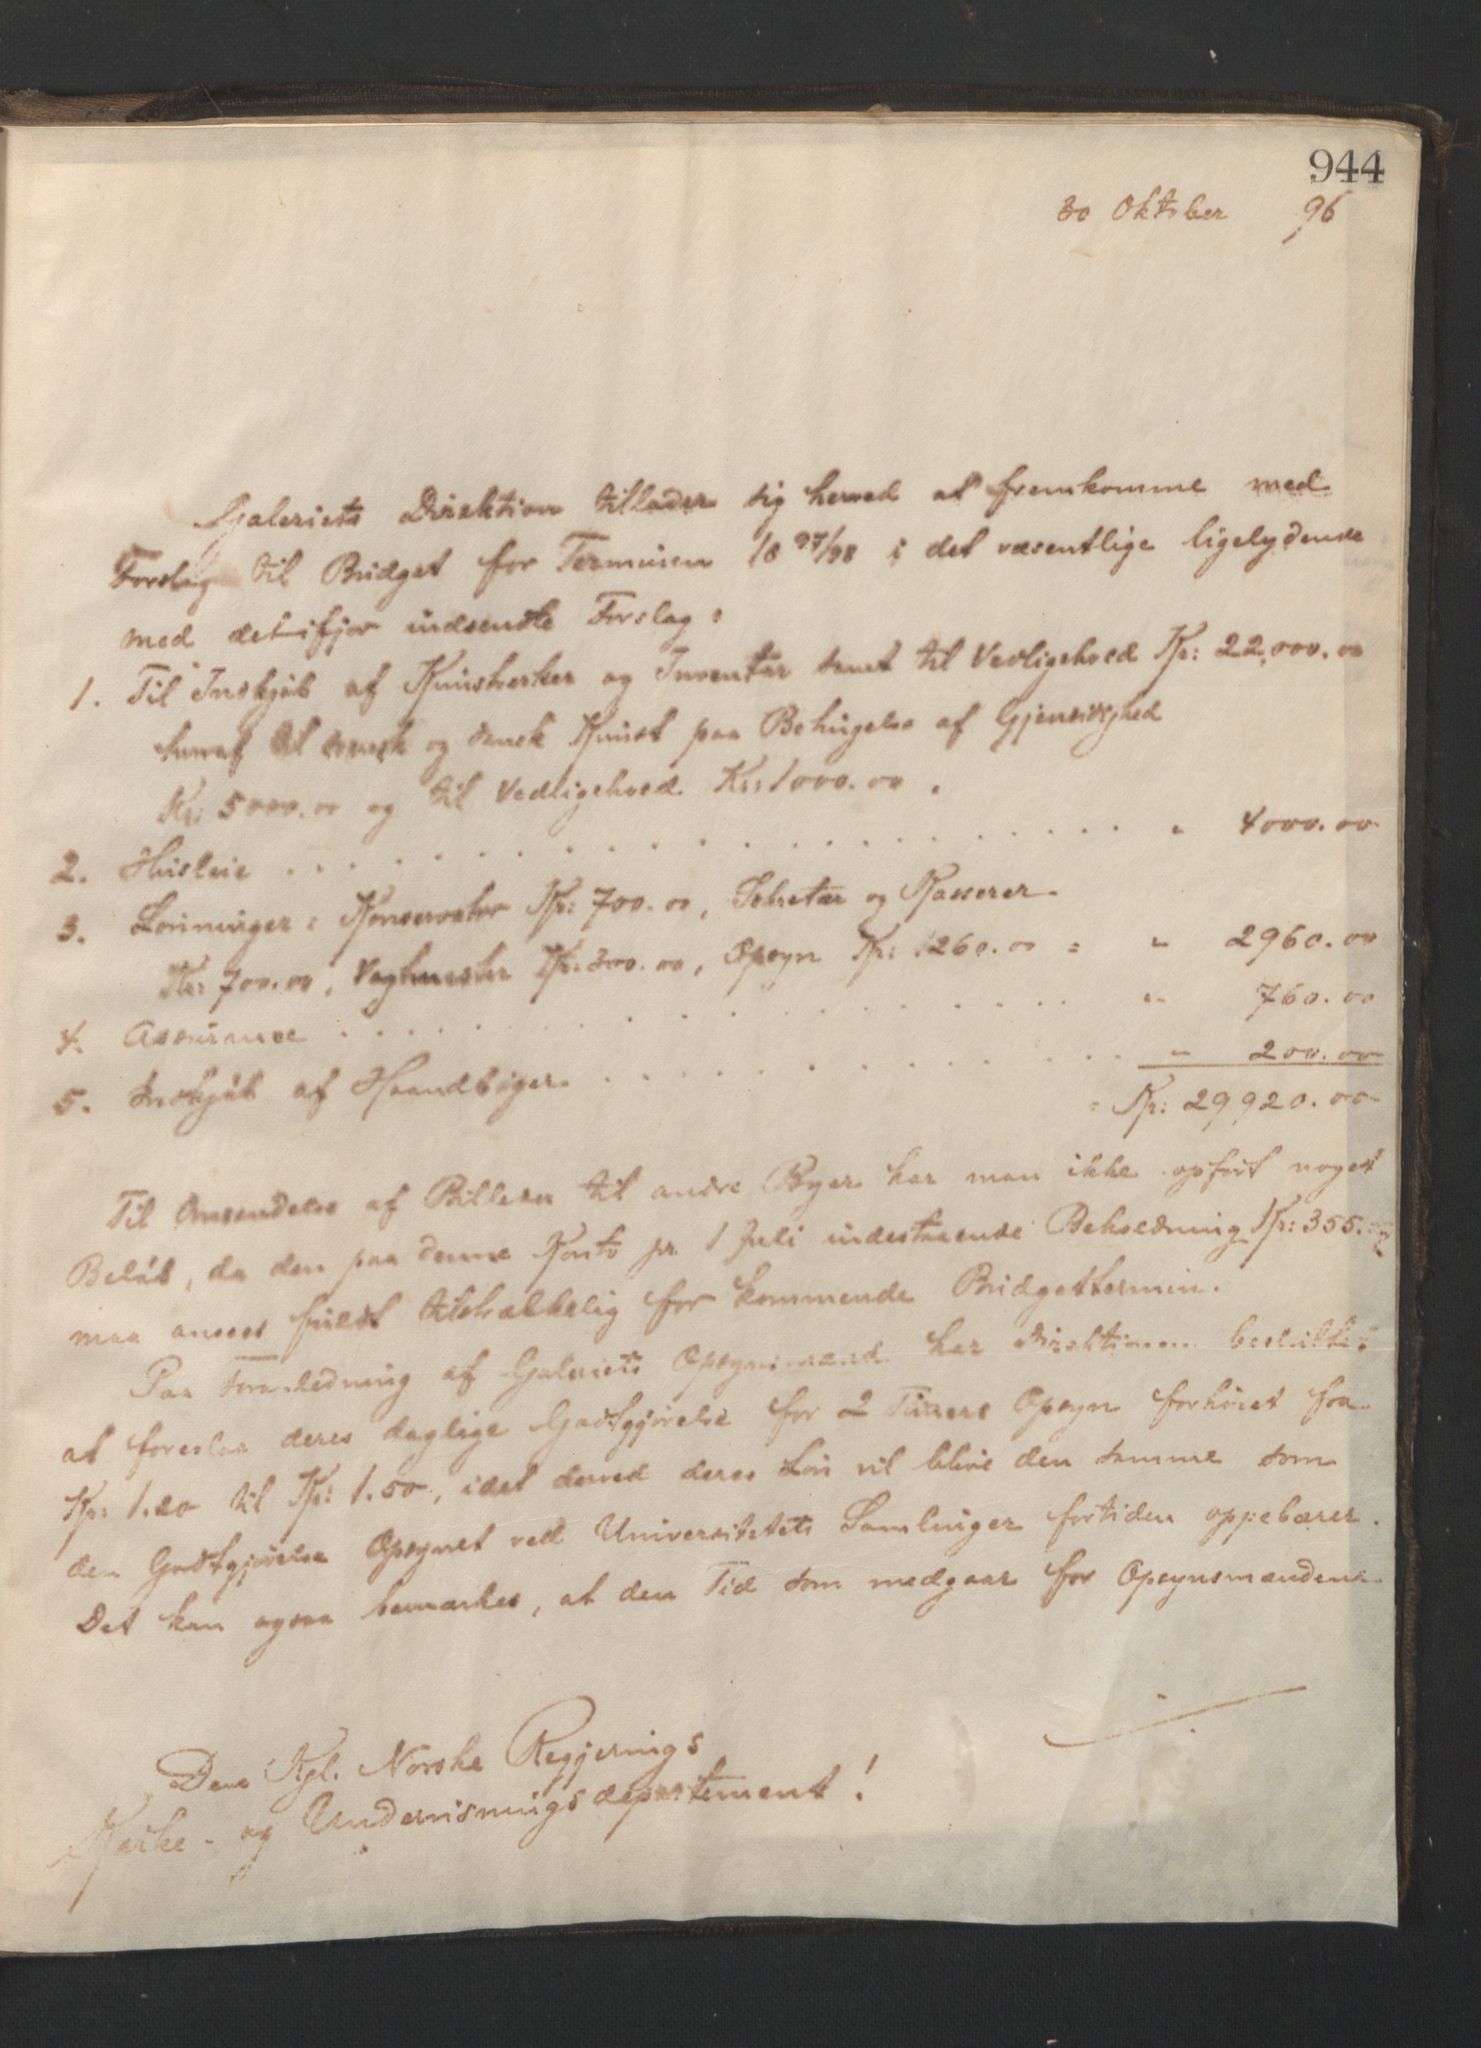 944
30 Oktober 96
Galeriets Direktion tillader sig herved at fremkomme med
Forslag til Budget for Terminen 18 97/98 i det væsentlige ligelydende
med det ifjor indsendte Forslag:
1. Til Indkjøb af Kunstverker og Inventar samt til Vedligehold Kr: 22,000.00
heraf til svensk og dansk Kunst paa Betingelse af Gjensidighed
Kr: 5000.00 og til Vedligehold Kr: 1000.00.
2. Husleie . . . . . . . . . . . . . . . . . . . . " 4000.00
3. Lønninger: Konservator Kr: 700.00, Sekretær og Kasserer
Kr: 700.00, Vagtmester Kr: 300.00, Opsyn Kr: 1260.00 = " 2960.00
4. Assurance . . . . . . . . . . . . . . . . . . " 760.00
5. Indkjøb af Haandbøger . . . . . . . . . . . . . " 200.00
= Kr: 29,920.00
Til Omsendelse af Billeder til andre Byer har man ikke opført noget
Beløb, da den paa denne Konto pr 1 Juli indestaaende Beholdning Kr: 355.
maa ansees fuldt tilstrækkelig for kommende Budgettermin.
Paa Foranledning af Galeriets Opsynsmænd har Direktionen besluttet
at foreslaa deres daglige Godtgjørelse for 2 Timers Opsyn forhøiet fra
Kr: 1.20 til Kr: 1.50, idet derved deres Løn vil blive den samme som
den Godtgjørelse Opsynet ved Universitetets Samlinger fortiden oppebærer.
Det kan ogsaa bemærkes, at den Tid som medgaar for Opsynsmændene
Den Kgl. Norske Regjerings
Kirke- og Undervisningsdepartement!